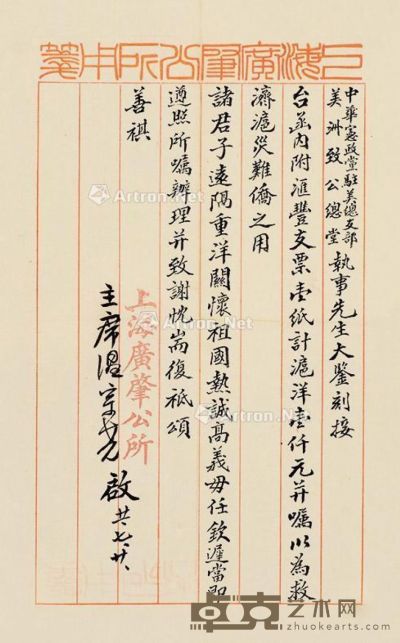 上海廣肇公所用箋
中華憲政黨駐美總支部
美洲致公總堂 執事先生大鑒刻接
台函內附滙豐支票壹紙計滬洋壹仟元并囑以為救
濟滬災難僑之用
諸君子遠隔重洋關懷祖國熱誠高義毋任欽遲當即
遵照所囑辦理并致謝忱耑復祗頌
善祺
上海廣肇公所
主席溫宗堯啟
Artron.Net
卓克艺术网
zhuokearts.com